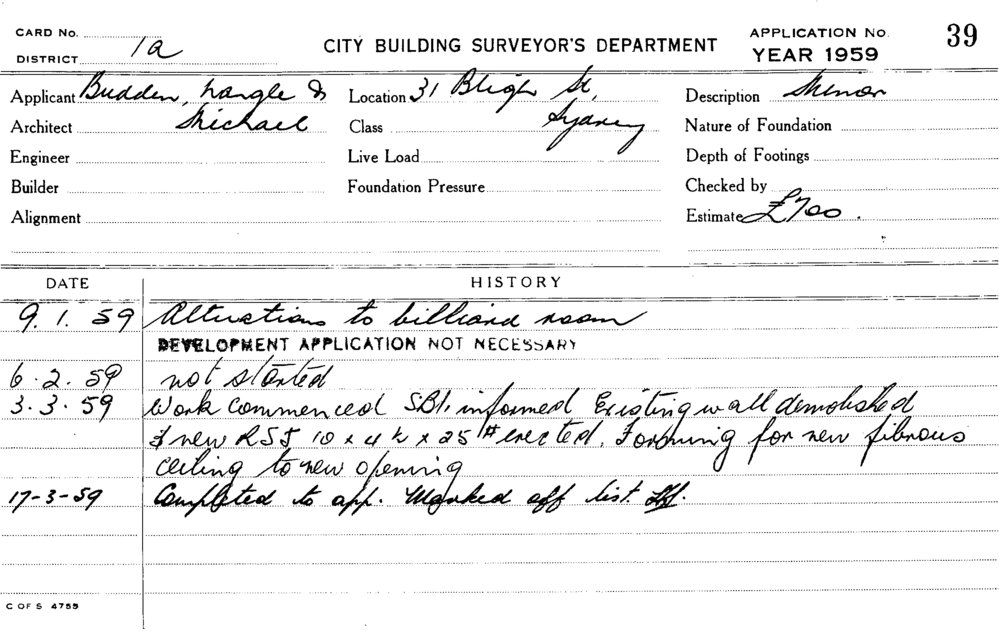 CARD No.
DISTRICT 1a
CITY BUILDING SURVEYOR'S DEPARTMENT
APPLICATION No. 39
YEAR 1959
Applicant Budden, Nangle &
Architect Michael
Engineer
Builder
Alignment
Location 31 Bligh St,
Class Sydney
Live Load
Foundation Pressure
Description
Nature of Foundation
Depth of Footings
Checked by
Estimate £700.
DATE HISTORY
9. 1. 59 Alterations to billiard room
DEVELOPMENT APPLICATION NOT NECESSARY
6. 2. 59 not started
3. 3. 59 Work commenced S.B.I. informed Existing wall demolished
& new RSJ 10 x 4½ x 25# erected. Forming for new fibrous
ceiling to new opening
17-3-59 Completed to app. Marked off list.
C OF S 4755